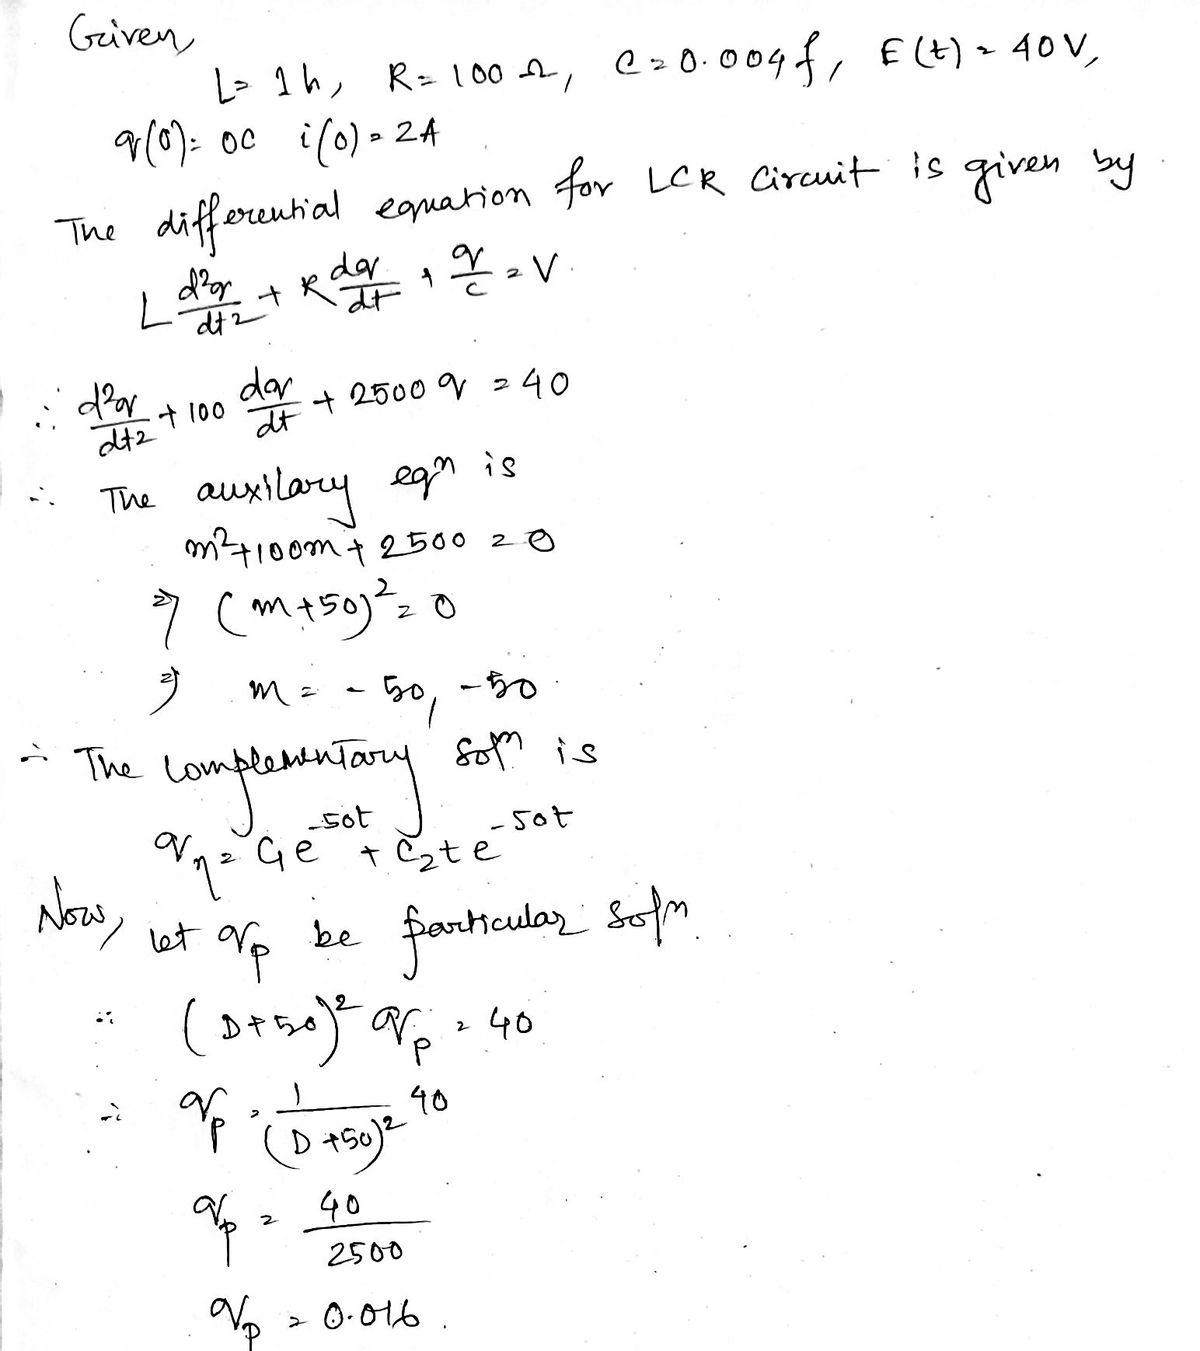 Given,
L = 1h, R = 100 Ω, C = 0.004f, E(t) = 40V,
q(0) = 0C i(0) = 2A
The differential equation for LCR circuit is given by
L d²q/dt² + R dq/dt + q/c = V
∴ d²q/dt² + 100 dq/dt + 2500 q = 40
∴ The auxilary eqn is
m²+100m+2500 = 0
⇒ (m+50)² = 0
⇒ m = -50, -50
∴ The complementary soln is
qη = C₁e^-50t + C₂te^-50t
Now, let qp be particular soln.
∴ (D+50)² qp = 40
∴ qp = 1/(D+50)² 40
qp = 40/2500
qp = 0.016.